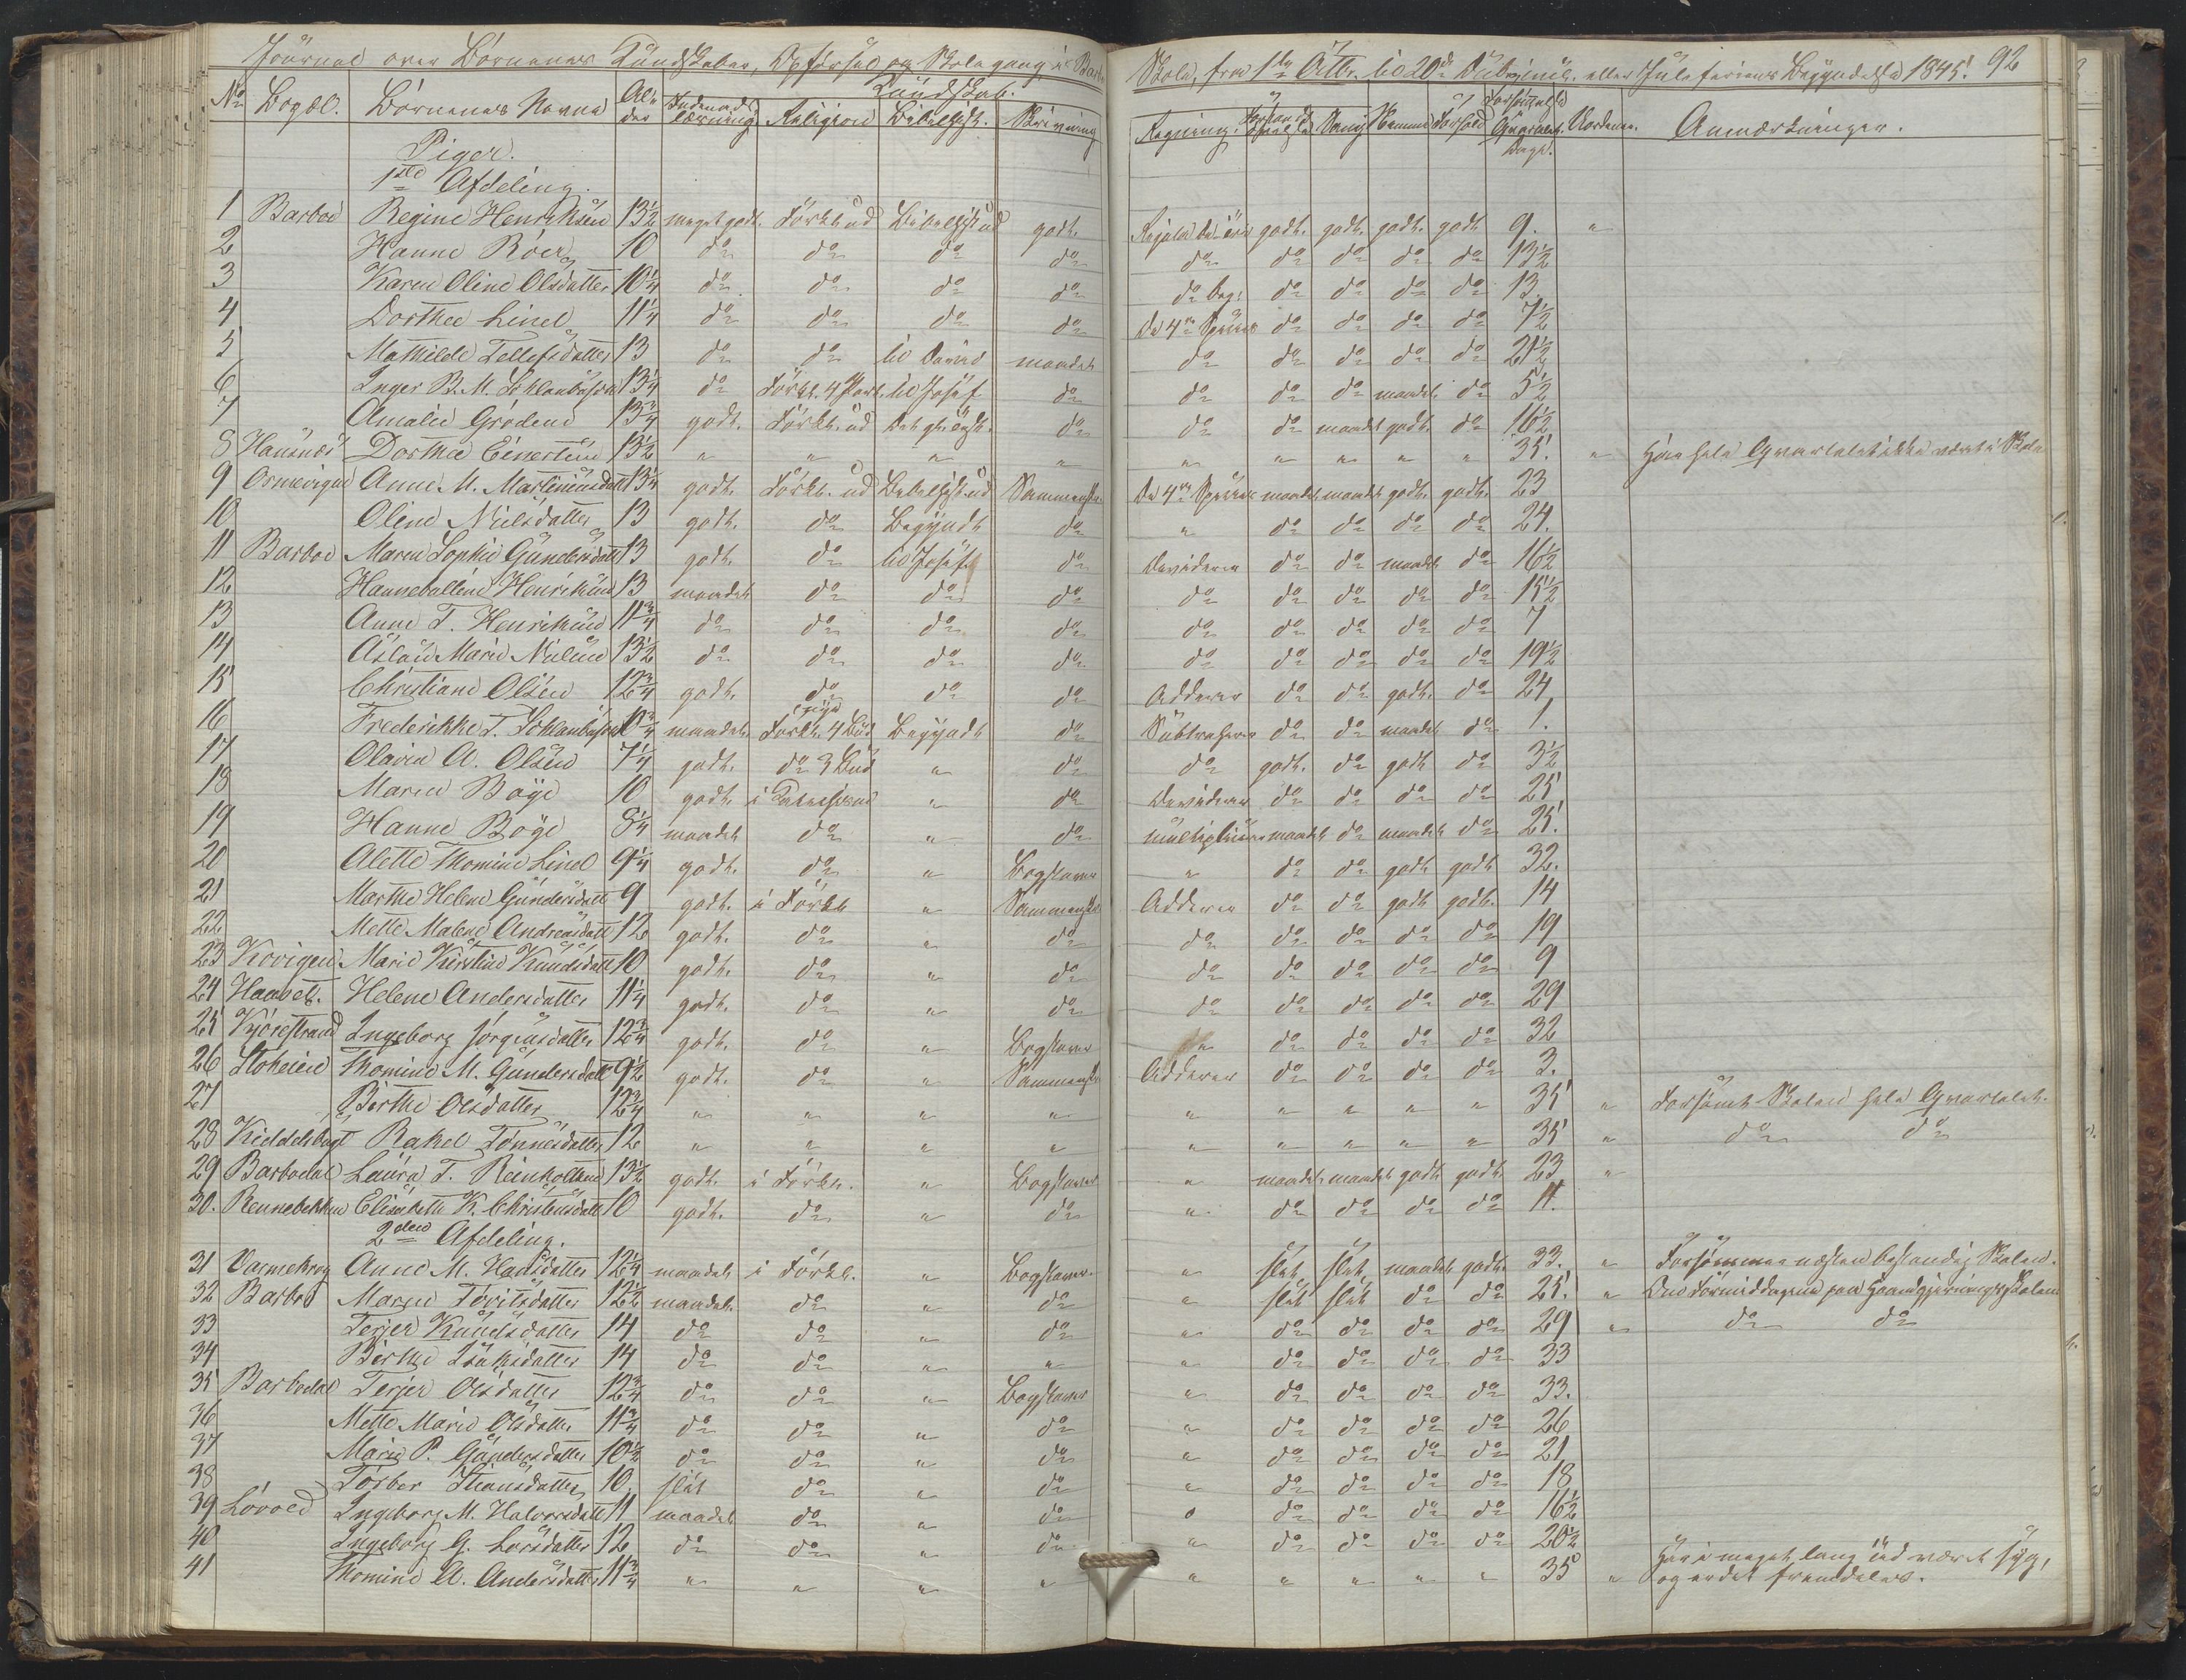 Journal over Börnenes Kundskaber, Opförsel og Skolegang i Barbo Skole, fra 1ste Octbr. til 20de Decbr. eller Juleferiens Begyndelse 1845. 92
No Bopæl. Börnenes Navne Alder Kundskab. Religion Bibelhist. Skrivning Regning. Sang Nemme Forhold Qvartalet Dage. Anmærkninger.
Piger.
1ste Afdeling.
1 Barboe Regine Henriksen 13½ meget godt. Forkl. ud Bibelhist. ud godt. godt. godt. godt. godt 9. "
2 Hanne Röer 10 do do do do do do do do do 13½
3 Karen Oline Olsdatter 10¼ do do do do do do do do do 13.
4 Dorthee Linel 11¼ do do do do De 4re Species do do do do 7½
5 Mathilde Tellefsdatter 13 do do til David maadel. do do do do do 21½
6 Inger B. M. 13¼ do Forkl. 4 Part. til Josef do do do do maadel. do 5½
7 Amalie Grödene 13¾ godt. Forkl. ud do do do maadel. godt. do 16½
8 Dorthee 13½ " " " " " " " " " 35. " Har hele Qvartalet ikke været i Skole
9 Anne M. Martiniusdatt 13¼ godt. Forkl. ud Bibelhist. ud Sammens. De 4re Species maadel. maadel. godt. godt. 23
10 Oline Nielsdatter 13 godt. do Begyndt do " do do do do 24.
11 Barboe Maren Sophie Gundersdatt 13 godt. do til Josef do Dividerer do do maadel. do 16½
12 Henriksen 13 maadel. do do do do do do do do 15½
13 Anne T. Henriksen 11¾ do do do do do do do do do 7
14 Aslau Marie Nielsen 13½ do do do do do do do do do 19½
15 Christiane Olsen 12¾ godt. do do do Adderer do do godt. do 24,
16 Frederikke T. maadel. Forkl. 4 Bud Begyndt do Subtraherer do do maadel. do 1.
17 Olavia A. Olsen 7¼ godt. do 3 Bud " do do godt. do godt do 3½
18 Maren Böye 10 godt. i " do Dividerer do do do do 25
19 Hanne Böye 8¼ maadel. do " do maadel. do maadel. do 25.
20 Alette Thomine Linel 9¼ godt. do " Bogstaver " do do godt godt 32.
21 Marthe Helene Gundersdatt 9 godt. i Forkl. " Sammens. Adderer do do godt godt. 14
22 Mette Malene Andreasdatt 12 godt. do " do do do do do do 19
23 Krovigen Marie Kirstine Knudsdatt 10 godt. do " do do do do do do 9
24 Haavet. Helene Andersdatter 11¼ godt. do " do do do do do do 29
25 Kjörestrand Ingeborg Jörginsdatter 12¾ godt. do " Bogstaver " do do do do 32
26 Stokeleie Thomine M. Gundersdatt 9½ godt. do " Sammens. Adderer do do do do 3.
27 Birthe Olsdatter 12¾ " " " " " " " " " 35 " Forsömt Skolen hele Qvartalet.
28 Kiddelsbugt Rakel Tönnesdatter 12 " " " " " " " " " 35 " do do
29 Barbodal Laura T. Reinholtsen 13½ godt. i Forkl. " Bogstaver " maadel. maadel. godt. godt. 23 "
30. Rennebekken Elisabeth K. Christensdatt 10 godt. do " do " do do do do 11.
2den Afdeling.
31 Varmekrog Anne M. Hansdatter 12¼ maadel. i Forkl. " Bogstaver. " slet slet maadel. godt. 33. " Forsömmer næsten bestandig Skolen.
32 Barbo Maren Toritsdatter 12½ maadel. do " do " slet slet do do 25. " Om Formiddagene paa Haandgjerningsskolen
33 Terjer Knudsdatter 14 do do " do " do do do do 29 " do do
34 Birthe Isaksdatter 14 do do " " " do do do do 33
35 Barbodal Terjer Olsdatter 12¾ do do " Bogstaver " do do do do 33.
36 Mette Marie Olsdatter 11¾ do do " do " do do do do 26
37 Marie P. Gundersdatter 10½ do do " do " do do do do 21
38 Torber 10. slet do " do " do do do do 18
39 Lövold Ingeborg M. Halvorsdatt 11 maadel. do " do " do do do do 16½
40 Ingeborg G. Larsdatter 12 do do " do " do do do do 20½
41 Thomine A. Andersdatter 11¾ " " " " " " " " " 35 " Har i meget lang tid været syg,
og er det fremdeles.